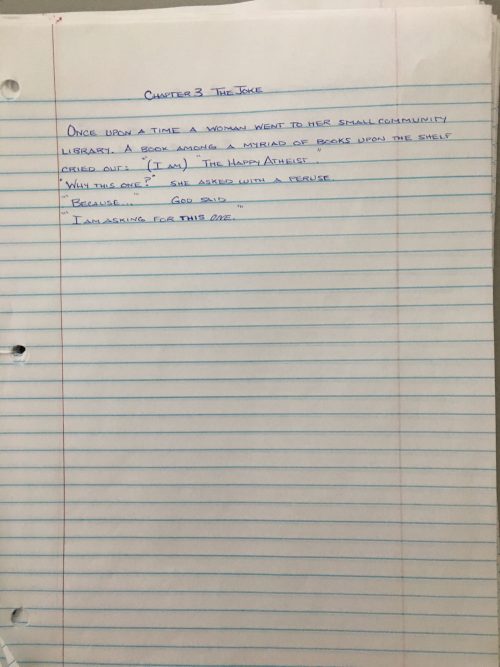 CHAPTER 3 THE JOKE
ONCE UPON A TIME A WOMAN WENT TO HER SMALL COMMUNITY
LIBRARY. A BOOK AMONG A MYRIAD OF BOOKS UPON THE SHELF
CRIED OUT: "'(I AM) "THE HAPPY ATHEIST."
"WHY THIS ONE?" SHE ASKED WITH A PERUSE.
"'BECAUSE..." GOD SAID
"'I AM ASKING FOR THIS ONE.'"